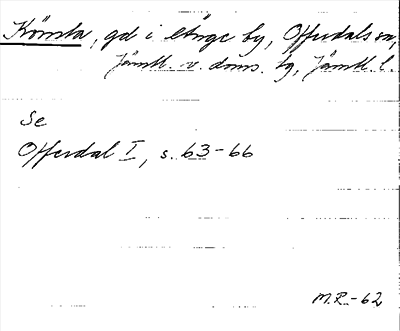 Könsta, gd i Änge by, Offerdals sn,
Jämtl. v. doms. tg, Jämtl. l.
Se
Offerdal I, s. 63-66
M.R.-62